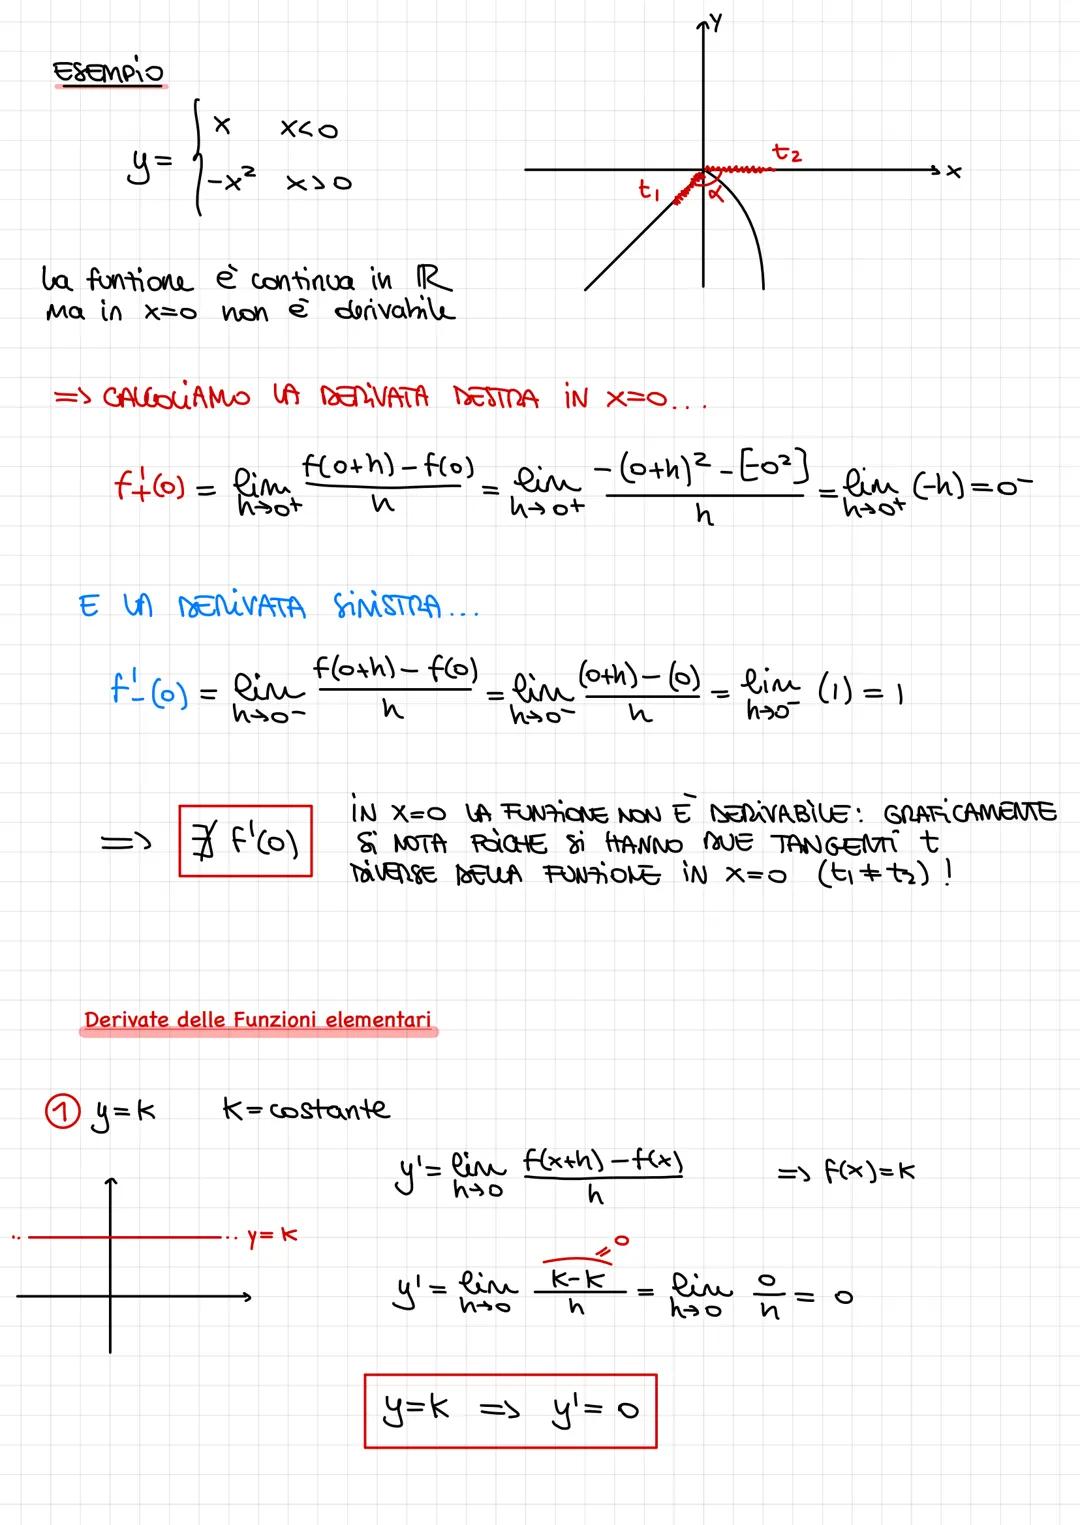 ESEMPIO
y = { x x<0
-x² x>0
La funzione è continua in ℝ
ma in x=0 non è derivabile
y
x
t₁
t₂
α
=> CALCOLIAMO LA DERIVATA DESTRA IN x=0...
f'₊(0) = lim h→0⁺ f(0+h) - f(0) / h = lim h→0⁺ -(0+h)² - [-0²] / h = lim h→0⁺ (-h) = 0⁻
E LA DERIVATA SINISTRA...
f'₋(0) = lim h→0⁻ f(0+h) - f(0) / h = lim h→0⁻ (0+h) - (0) / h = lim h→0⁻ (1) = 1
=> ∄ f'(0)
IN X=0 LA FUNZIONE NON È DERIVABILE: GRAFICAMENTE
SI NOTA POICHÈ SI HANNO DUE TANGENTI t
DIVERSE DELLA FUNZIONE IN X=0 (t₁ ≠ t₂) !
Derivate delle Funzioni elementari
① y=k k=costante
y' = lim h→0 f(x+h) - f(x) / h => f(x)=k
.. .. y=k
y' = lim h→0 k-k / h = lim h→0 0 / h = 0
= 0
y=k => y'=0